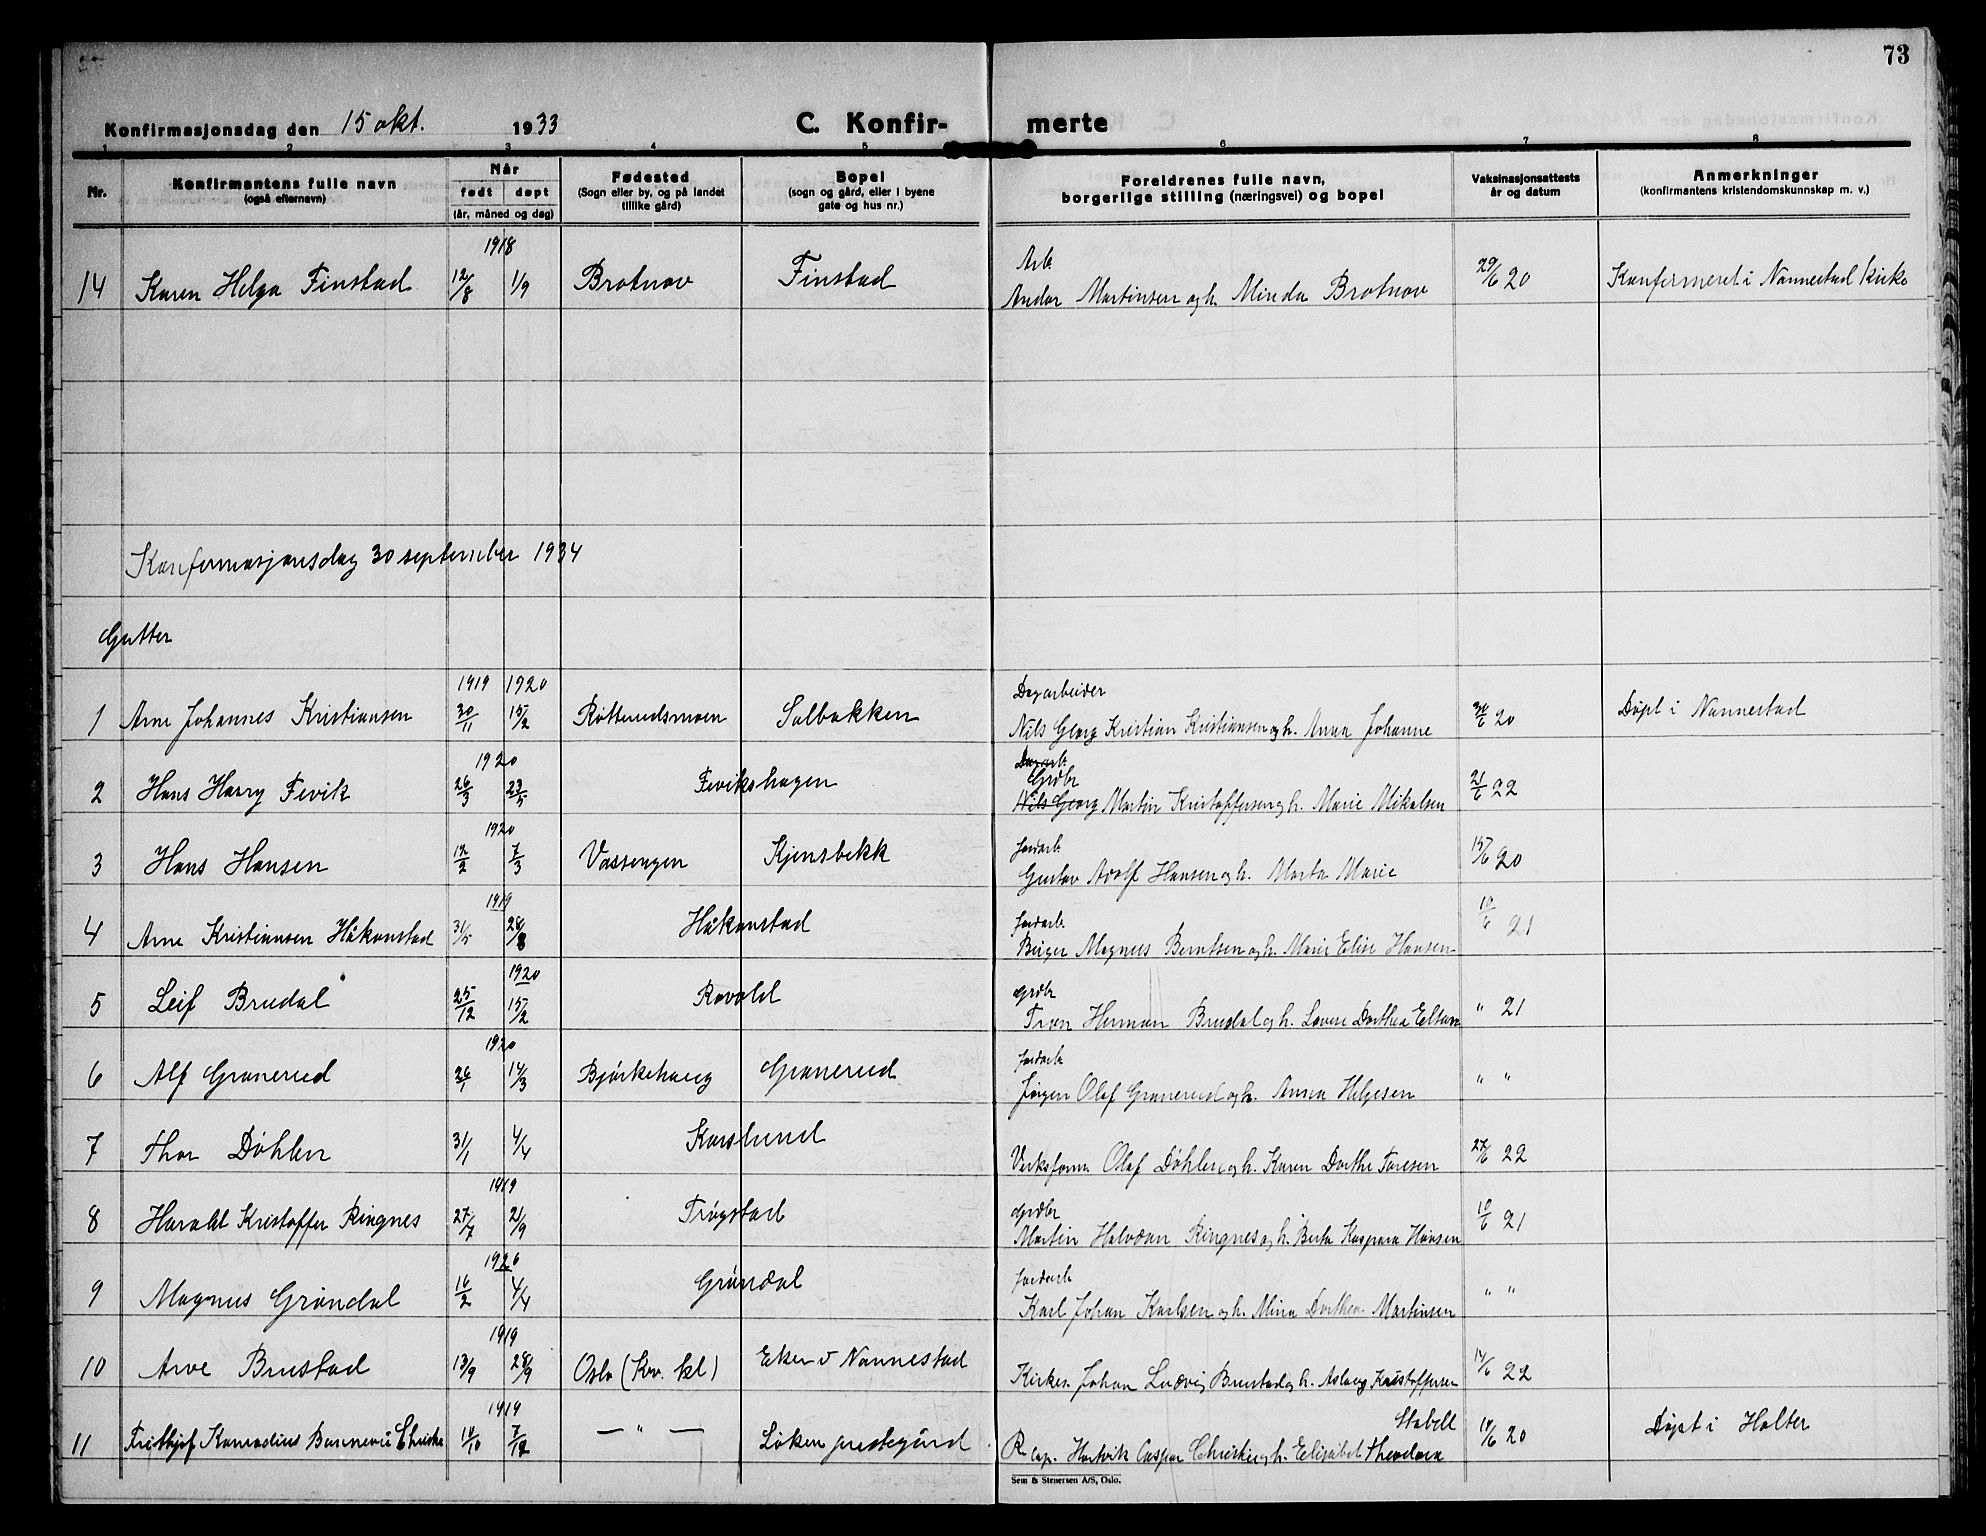 73
Konfirmasjonsdag den 15 okt. 1933 C. Konfir- merte
1 2 3 4 5 6 7 8
Nr. Konfirmantens fulle navn (også efternavn) Når født døpt (år, måned og dag) Fødested (Sogn eller by, og på landet tillike gård) Bopel (sogn og gård, eller i byene gate og hus nr.) Foreldrenes fulle navn, borgerlige stilling (næringsvei) og bopel Vaksinasjonsattests år og datum Anmerkninger (konfirmantens kristendomskunnskap m. v.)
1918 Arb.
14 Karen Helga Finstad 12/8 1/9 Brotnov Finstad Andor Martinsen og h. Minda Brotnov 29/6 20 Konfirmeret i Nannestad kirke
Konfirmasjonsdag 30 september 1934
Gutter
1919 1920 Dagarbeider
1 Arne Johannes Kristiansen 30/11 15/2 Røtterudsmoen Solbakken Nils Georg Kristian Kristiansen og h. Anna Johanne 30/6 20 Døpt i Nannestad
1920 Dagarb. Grdbr
2 Hans Harry Fevik 26/3 23/5 Fevikshagen Nils Georg Martin Kristoffersen og h. Marie Mikalsen 21/6 22
1920 Jordarb.
3 Hans Hansen 12/2 7/3 Vassengen Kjensbekk Gustav Adolf Hansen og h. Marta Marie 15/6 20
1919 Jordarb.
4 Arne Kristiansen Håkonstad 31/5 28/8 Håkonstad Birger Magnus Berntsen og h. Marie Elise Hansen 10/6 21
1920 Grdbr
5 Leif Brudal 25/12 15/2 Rovold Tron Herman Brudal og h. Lovise Dorthea " 21
1920 Jordarb.
6 Alf Granerud 26/1 14/3 Bjørkehaug Granerud Jørgen Olaf Granerud og h. Anna Helgesen " "
7 Thor Døhlen 31/1 4/4 Karslund Verksform. Olaf Døhlen og h. Karen Dorthe Toresen 27/6 22
1919 Grdbr
8 Harald Kristoffer Ringnes 27/7 21/9 Trøgstad Martin Halvdan Ringnes og h. Berta Kaspara Hansen 10/6 21
1920 Jordarb
9 Magnus Grøndal 16/2 4/4 Grøndal Karl Johan Karlsen og h. Mina Dorthea Martinsen " "
1919
10 Arve Brustad 13/9 28/9 Oslo (Kv. kl) Eker v Nannestad Kirkes. Johan Ludvig Brustad og h. Aslaug Kristoffersen 14/6 22
1919 Stabell
11 Frithjof Konradius Bonnevie Christie 10/10 7/12 — " — Løken prestegård R cap. Hartvik Caspar Christie og h. Elisabet Theodora 14/6 20 Døpt i Holter
Sem & Stenersen A/S, Oslo.